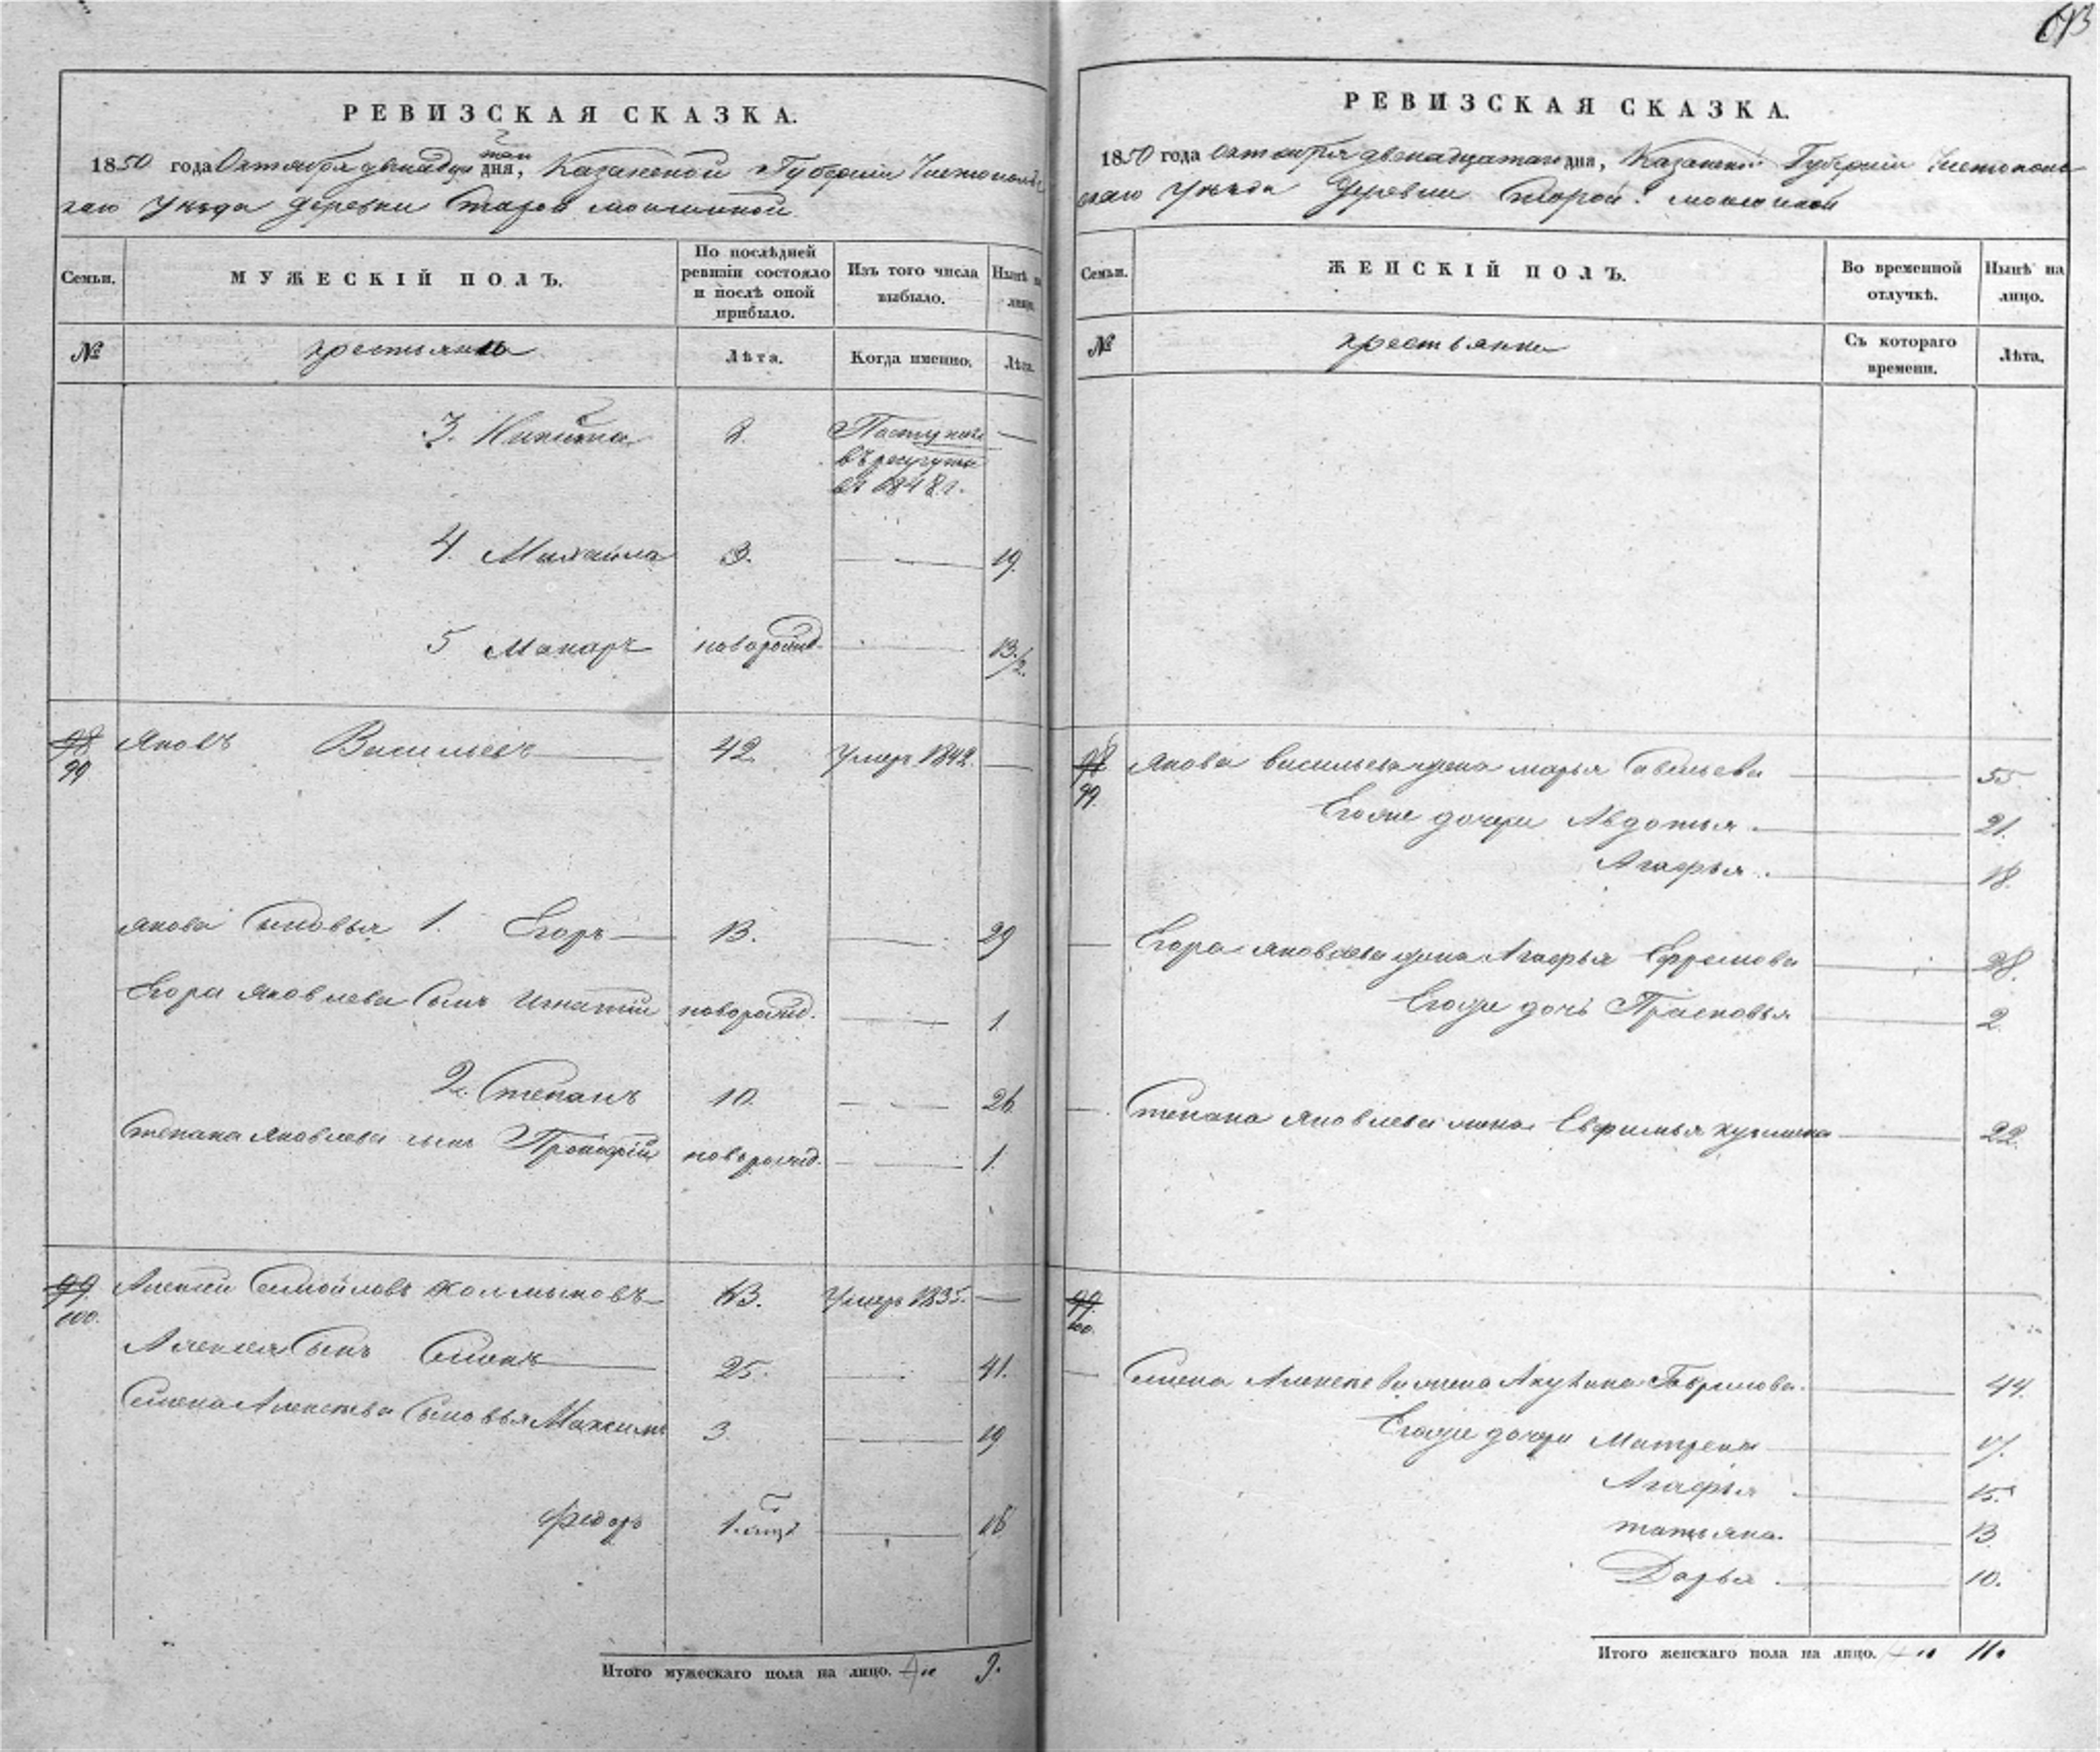 693
РЕВИЗСКАЯ СКАЗКА.
1850 года Октября двенадцатаго дня, Казанской Губернии Чистопольс
каго Уезда деревни Старой мокшиной
Семьи. МУЖЕСКІЙ ПОЛЪ. По послѣдней ревизіи состояло и послѣ оной прибыло. Изъ того числа выбыло. Нынѣ на лицо.
№ крестьяне Лѣта. Когда именно. Лѣта.
3. Никита 2. Поступилъ —
въ рекруты
въ 1848 г.
4. Михайла 3. — 19.
5 Макаръ новорожд. — 13 1/2.
98 Яковъ Васильевъ — 42. Умеръ 1842. —
99
Якова Сыновья 1. Егоръ — 13. — 29
Егора Яковлева Сынъ Игнатій новорожд. — 1.
2. Степанъ 10. — 26
Степана Яковлева сынъ Прокофій новорожд. — 1.
99. Алексей Самойловъ Колмыковъ — 63. Умеръ 1835. —
100.
Алексея Сынъ Семенъ — 25. — 41.
Семена Алексеева Сыновья Максимъ 3. — 19
Федоръ 1. мцъ — 16
Итого мужескаго пола на лицо. 9.
РЕВИЗСКАЯ СКАЗКА.
1850 года октября двенадцатаго дня, Казанской Губерніи Чистополь
скаго Уезда Деревни Старой мокшиной
Семьи. ЖЕНСКІЙ ПОЛЪ. Во временной отлучкѣ. Нынѣ на лицо.
№ крестьянки Съ котораго времени. Лѣта.
98. Якова васильева жена марья Савельева — 55
99.
Егоже дочери Авдотья. — 21.
Агафья. — 18.
— Егора яковлева жена Агафья Ефремова — 28.
Егоже дочь Прасковья — 2
— Степана яковлева жена Евфимья кузмина — 22.
99.
100.
— Семена Алексеева жена Акулина Гаврилова. — 44.
Егоже дочери Матрена — 17.
Агафья — 15.
татьяна. — 13
Дарья. — 10.
Итого женскаго пола на лицо. 11.